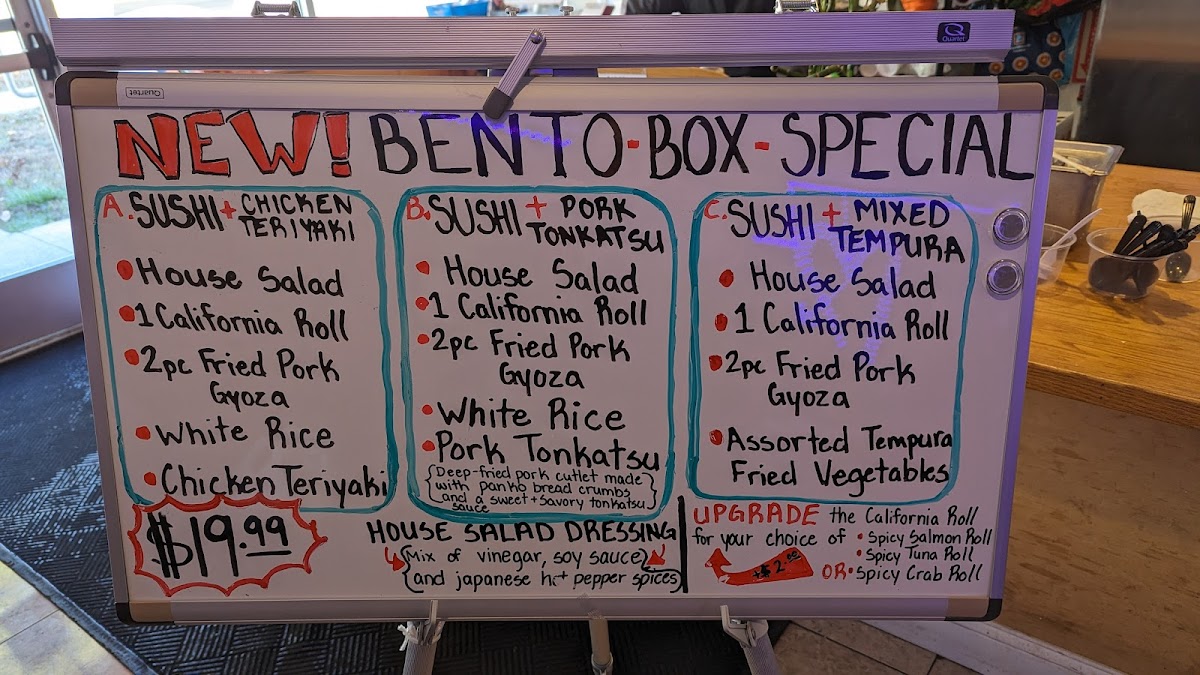 Quartet
Quartet
NEW! BENTO-BOX-SPECIAL
A. SUSHI + CHICKEN
TERIYAKI
• House Salad
• 1 California Roll
• 2pc Fried Pork
Gyoza
• White Rice
• Chicken Teriyaki
B. SUSHI + PORK
TONKATSU
• House Salad
• 1 California Roll
• 2pc Fried Pork
Gyoza
• White Rice
• Pork Tonkatsu
{Deep-fried pork cutlet made
with panko bread crumbs
and a sweet + savory tonkatsu
sauce}
C. SUSHI + MIXED
TEMPURA
• House Salad
• 1 California Roll
• 2pc Fried Pork
Gyoza
• Assorted Tempura
Fried Vegetables
$19.99
HOUSE SALAD DRESSING
{Mix of vinegar, soy sauce
and japanese hot pepper spices}
UPGRADE the California Roll
for your choice of • Spicy Salmon Roll
• Spicy Tuna Roll
OR • Spicy Crab Roll
+$2.00